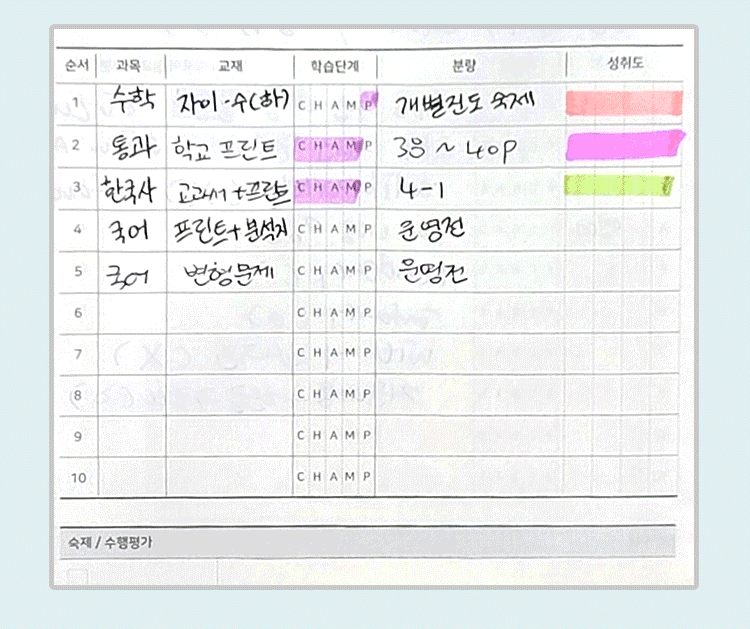 순서 과목 교재 학습단계 분량 성취도
1 수학 자이·수(하) C H A M P 개별진도 숙제
2 통과 학교 프린트 C H A M P 38 ~ 40p
3 한국사 교과서+프린트 C H A M P 4-1
4 국어 프린트+분석지 C H A M P 운영전
5 국어 변형문제 C H A M P 운영전
6 C H A M P
7 C H A M P
8 C H A M P
9 C H A M P
10 C H A M P
숙제 / 수행평가